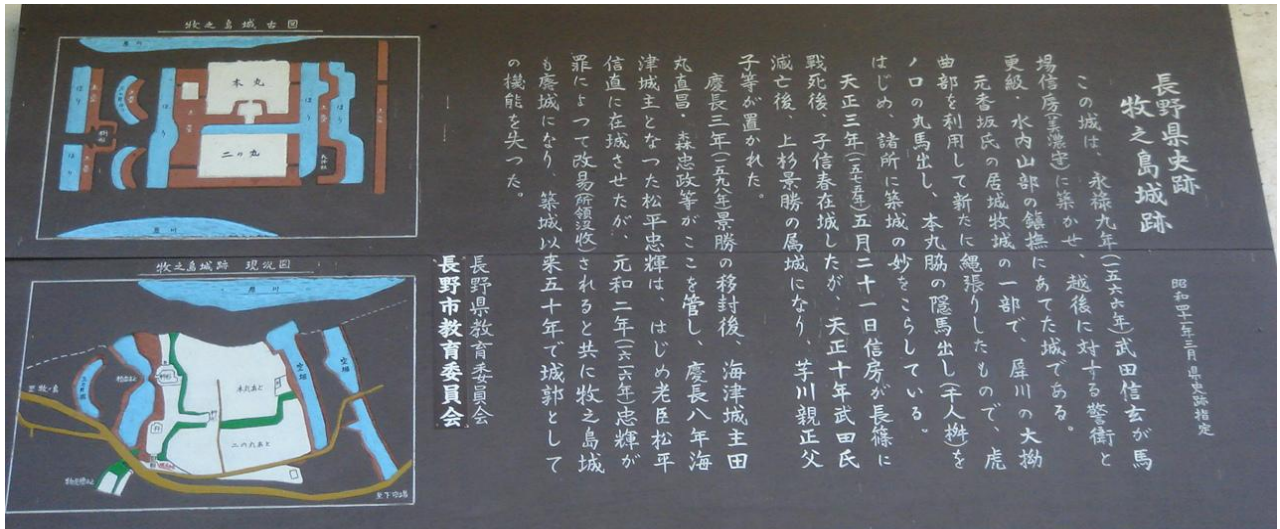 長野県史跡
牧之島城跡
昭和四十一年三月 県史跡指定
この城は、永禄九年(一五六六年)武田信玄が馬
場信房(美濃守)に築かせ、越後に対する警衛と
更級・水内山部の鎮撫にあてた城である。
元香坂氏の居城牧城の一部で、犀川の大拗
曲部を利用して新たに縄張りしたもので、虎
ノ口の丸馬出し、本丸脇の隠馬出し(千人桝)を
はじめ、諸所に築城の妙をこらしている。
天正三年(一五七五年)五月二十一日信房が長篠に
戦死後、子信春在城したが、天正十年武田氏
滅亡後、上杉景勝の属城になり、芋川親正父
子等が置かれた。
慶長三年(一五九八年)景勝の移封後、海津城主田
丸直昌・森忠政等がここを管し、慶長八年海
津城主となつた松平忠輝は、はじめ老臣松平
信直に在城させたが、元和二年(一六一六年)忠輝が
罪によつて改易(所領没收)されると共に牧之島城
も廃城になり、築城以来五十年で城郭として
の機能を失つた。
長野県教育委員会
長野市教育委員会
牧之島城古図
犀川
本丸
二の丸
ほり
ほり
ほり
ほり
ほり
犀川
牧之島城跡 現況図
犀川
空堀
空堀
本丸あと
二の丸あと